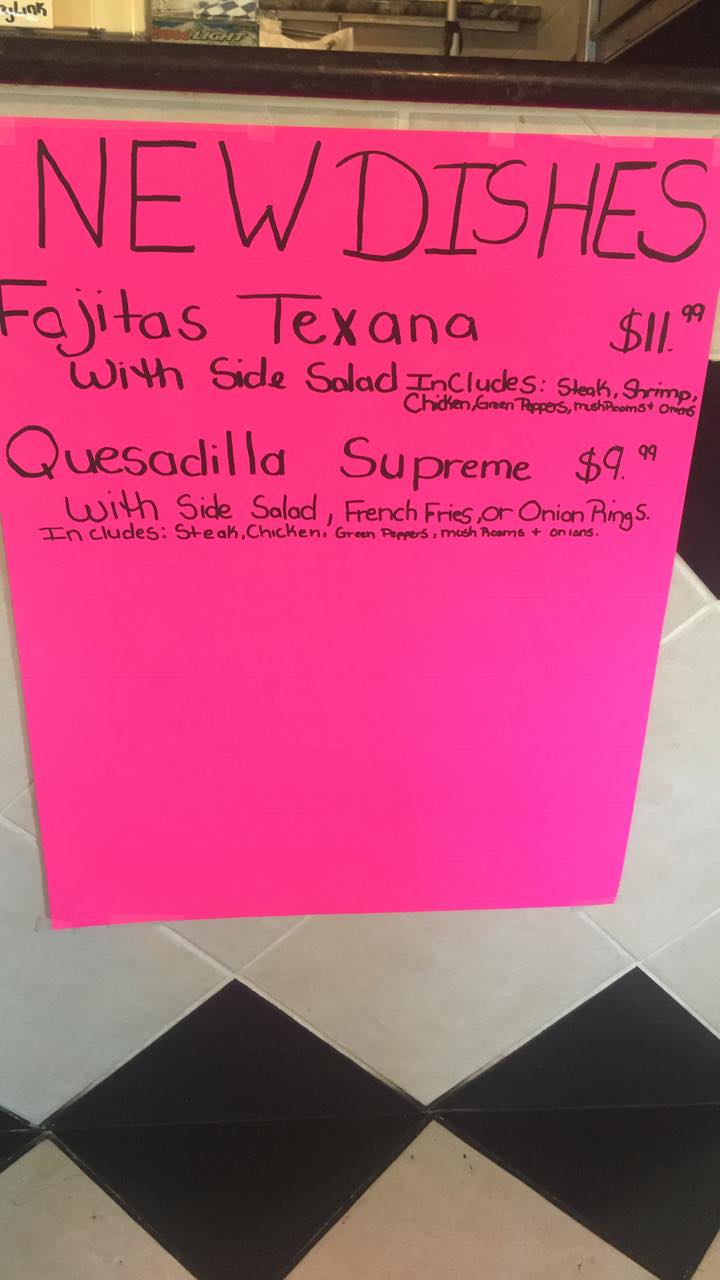 LIGHT
NEW DISHES
Fajitas Texana $11.99
With Side Salad Includes: Steak, Shrimp,
Chicken, Green Peppers, mushRooms + Onions
Quesadilla Supreme $9.99
With Side Salad, French Fries, or Onion Rings.
Includes: Steak, Chicken, Green Peppers, mushRooms + onions.